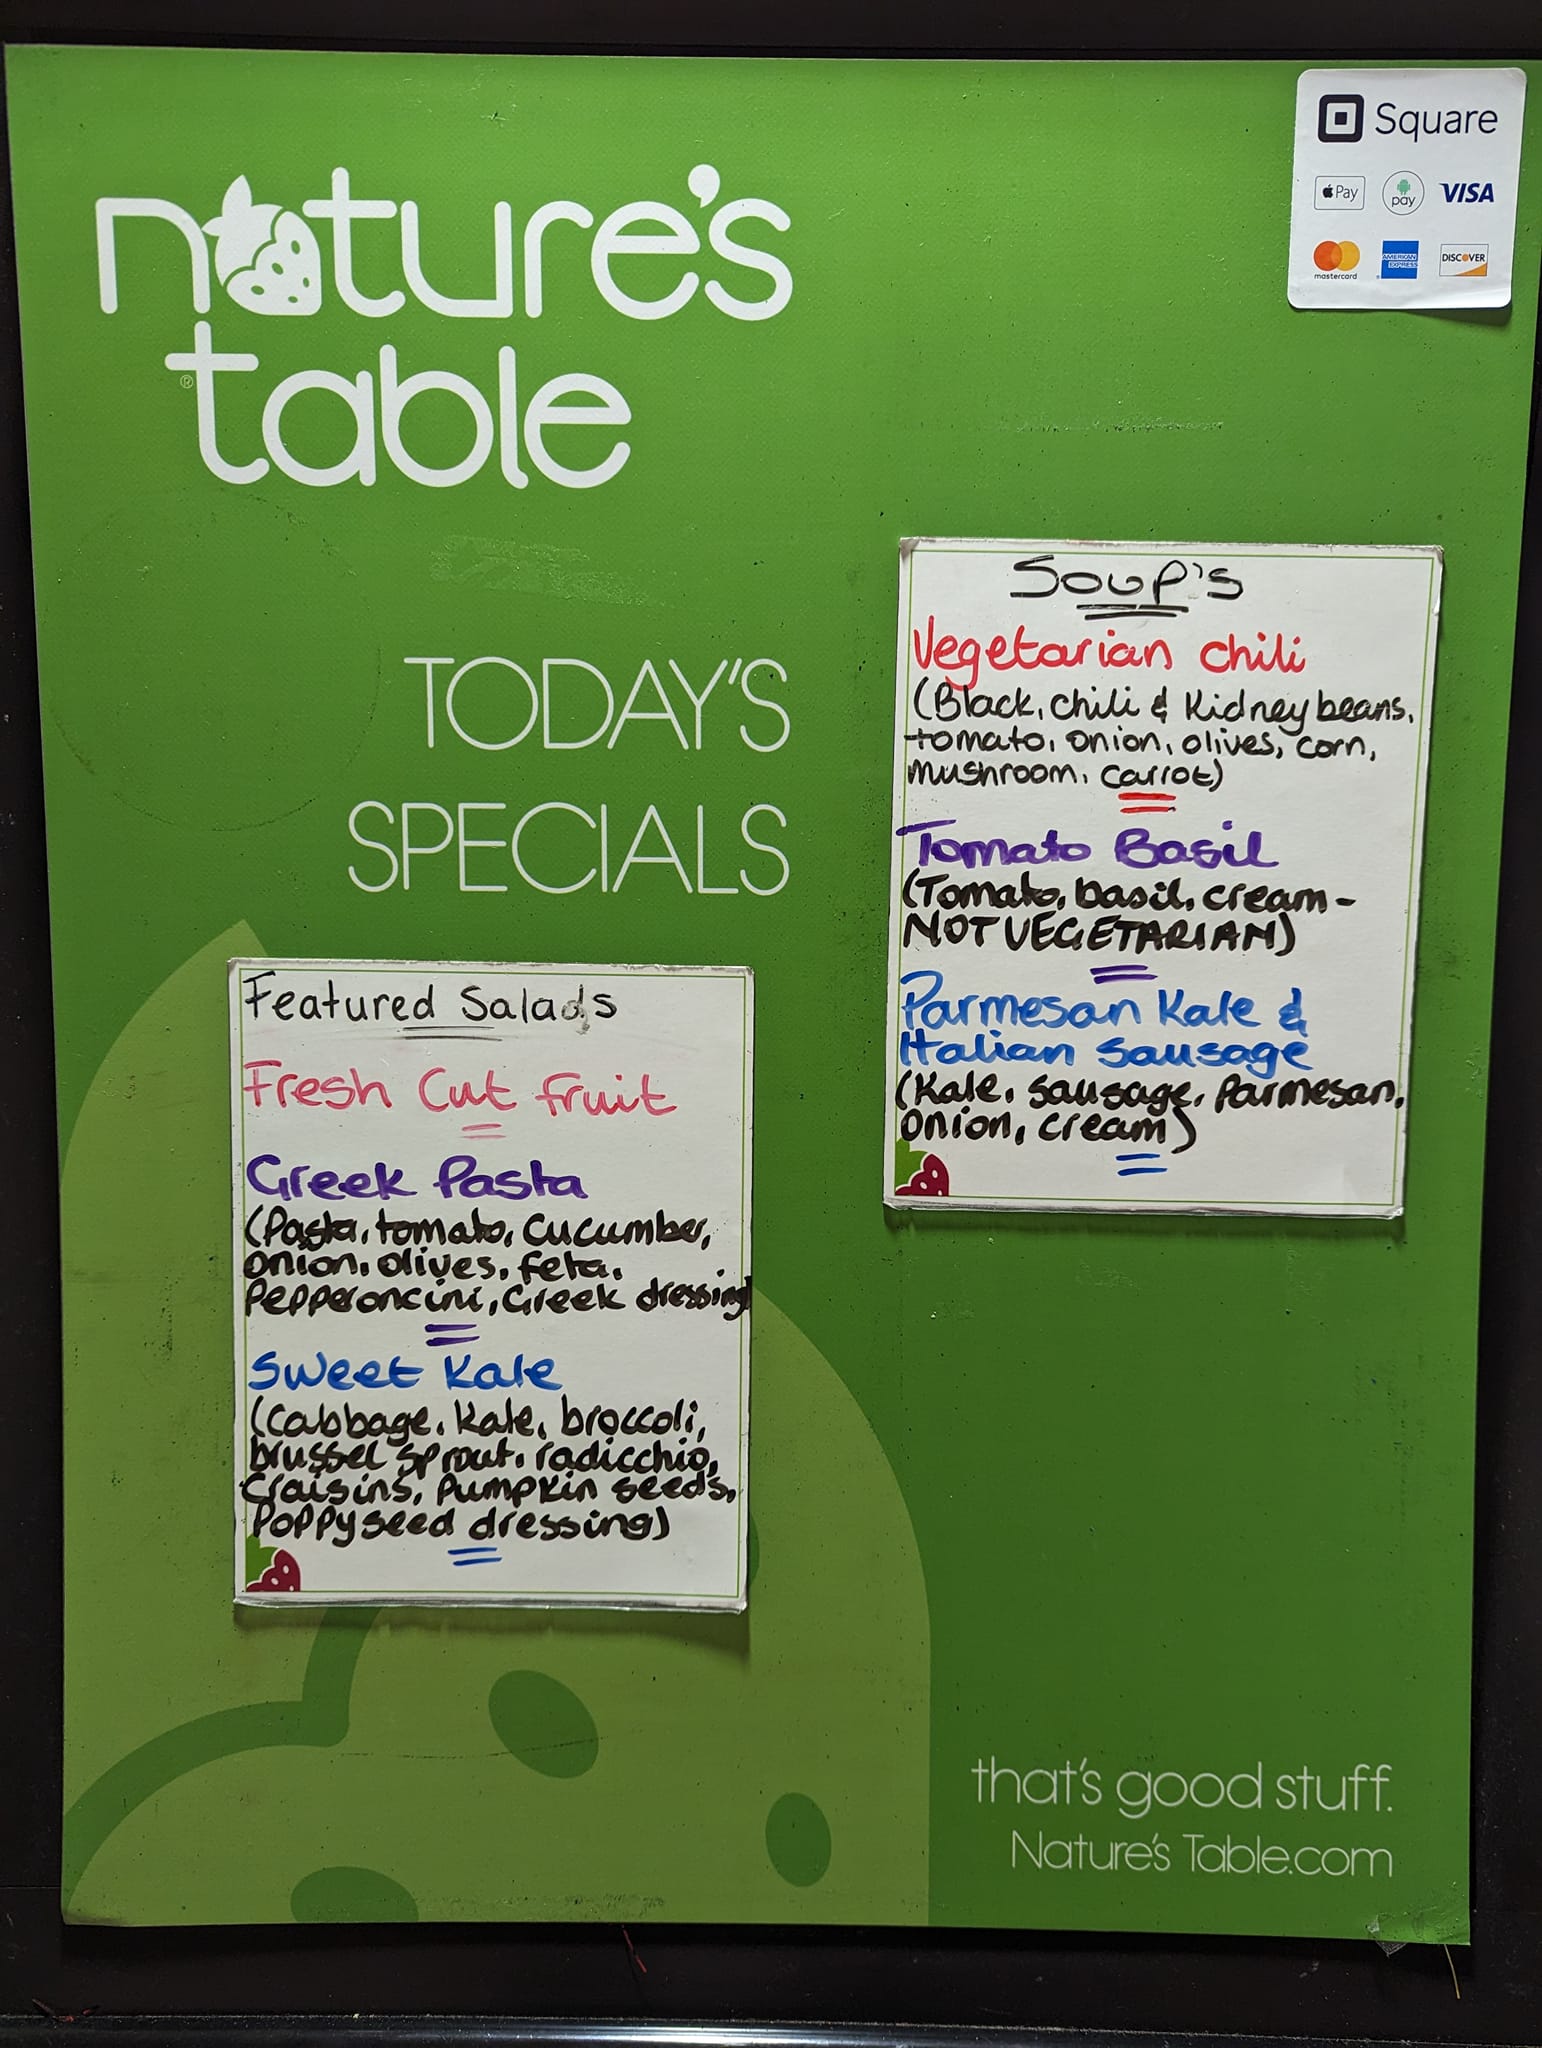 nature's
table
®
Square
Pay
pay
VISA
mastercard
AMERICAN
EXPRESS
DISCOVER
TODAY'S
SPECIALS
Soup's
Vegetarian chili
(Black, chili & kidney beans,
tomato, onion, olives, corn,
mushroom, carrot)
Tomato Basil
(Tomato, basil, cream-
NOT VEGETARIAN)
Parmesan Kale &
Italian Sausage
(Kale, sausage, parmesan,
onion, cream)
Featured Salads
Fresh Cut Fruit
Greek Pasta
(Pasta, tomato, cucumber,
onion, olives, feta,
Pepperoncini, Greek dressing)
Sweet Kale
(Cabbage, kale, broccoli,
brussel sprout, radicchio,
craisins, pumpkin seeds,
poppyseed dressing)
that's good stuff.
Nature's Table.com